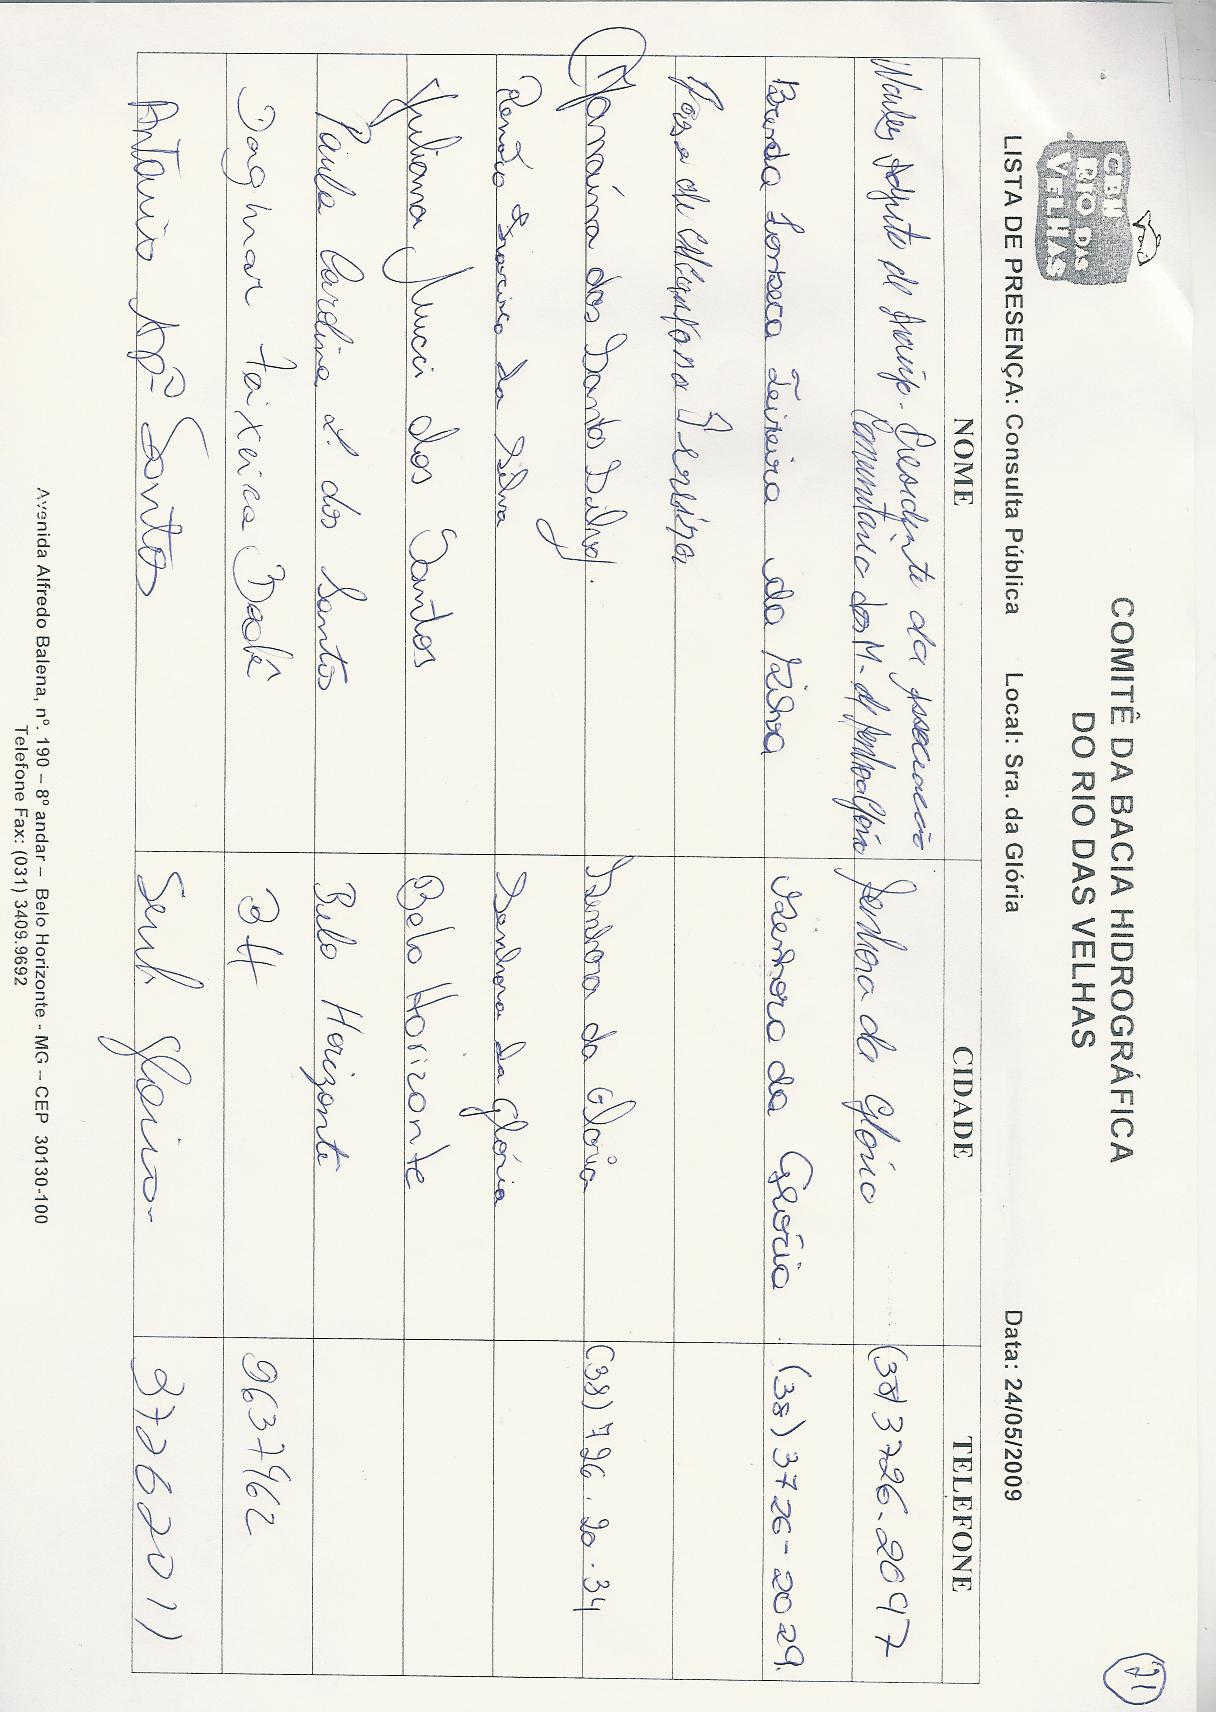 71
CBH
RIO DAS
VELHAS
COMITÊ DA BACIA HIDROGRÁFICA
DO RIO DAS VELHAS
LISTA DE PRESENÇA: Consulta Pública Local: Sra. da Glória Data: 24/05/2009
NOME CIDADE TELEFONE
de Araujo - Presidente da Associação
Comunitaria dos M. de Senhora Glória Senhora da Gloria (38) 3726-2097
Brenda Fonseca Teixeira da Silva Senhora da Glória (38) 3726-2029
Pereira
Janaína dos Santos Silva. Senhora da Gloria (38) 726.20.34
Renato da Silva Senhora da Glória
Juliana Junci dos Santos Belo Horizonte
Paula Carolina S. dos Santos Belo Horizonte
Dagmar Teixeira BH 9637962
Antonio Apº Santos Senh Gloria 37262011
Avenida Alfredo Balena, nº. 190 – 8º andar – Belo Horizonte - MG – CEP 30130-100
Telefone Fax: (031) 3409.9692